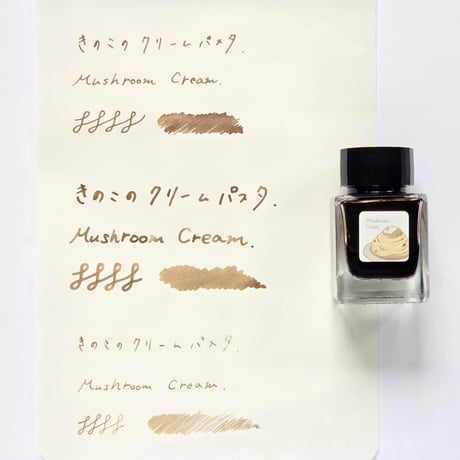 きのこの クリームパスタ.
Mushroom Cream.
きのこの クリームパスタ.
Mushroom Cream.
Mushroom
Cream
きのこの クリームパスタ.
Mushroom Cream.